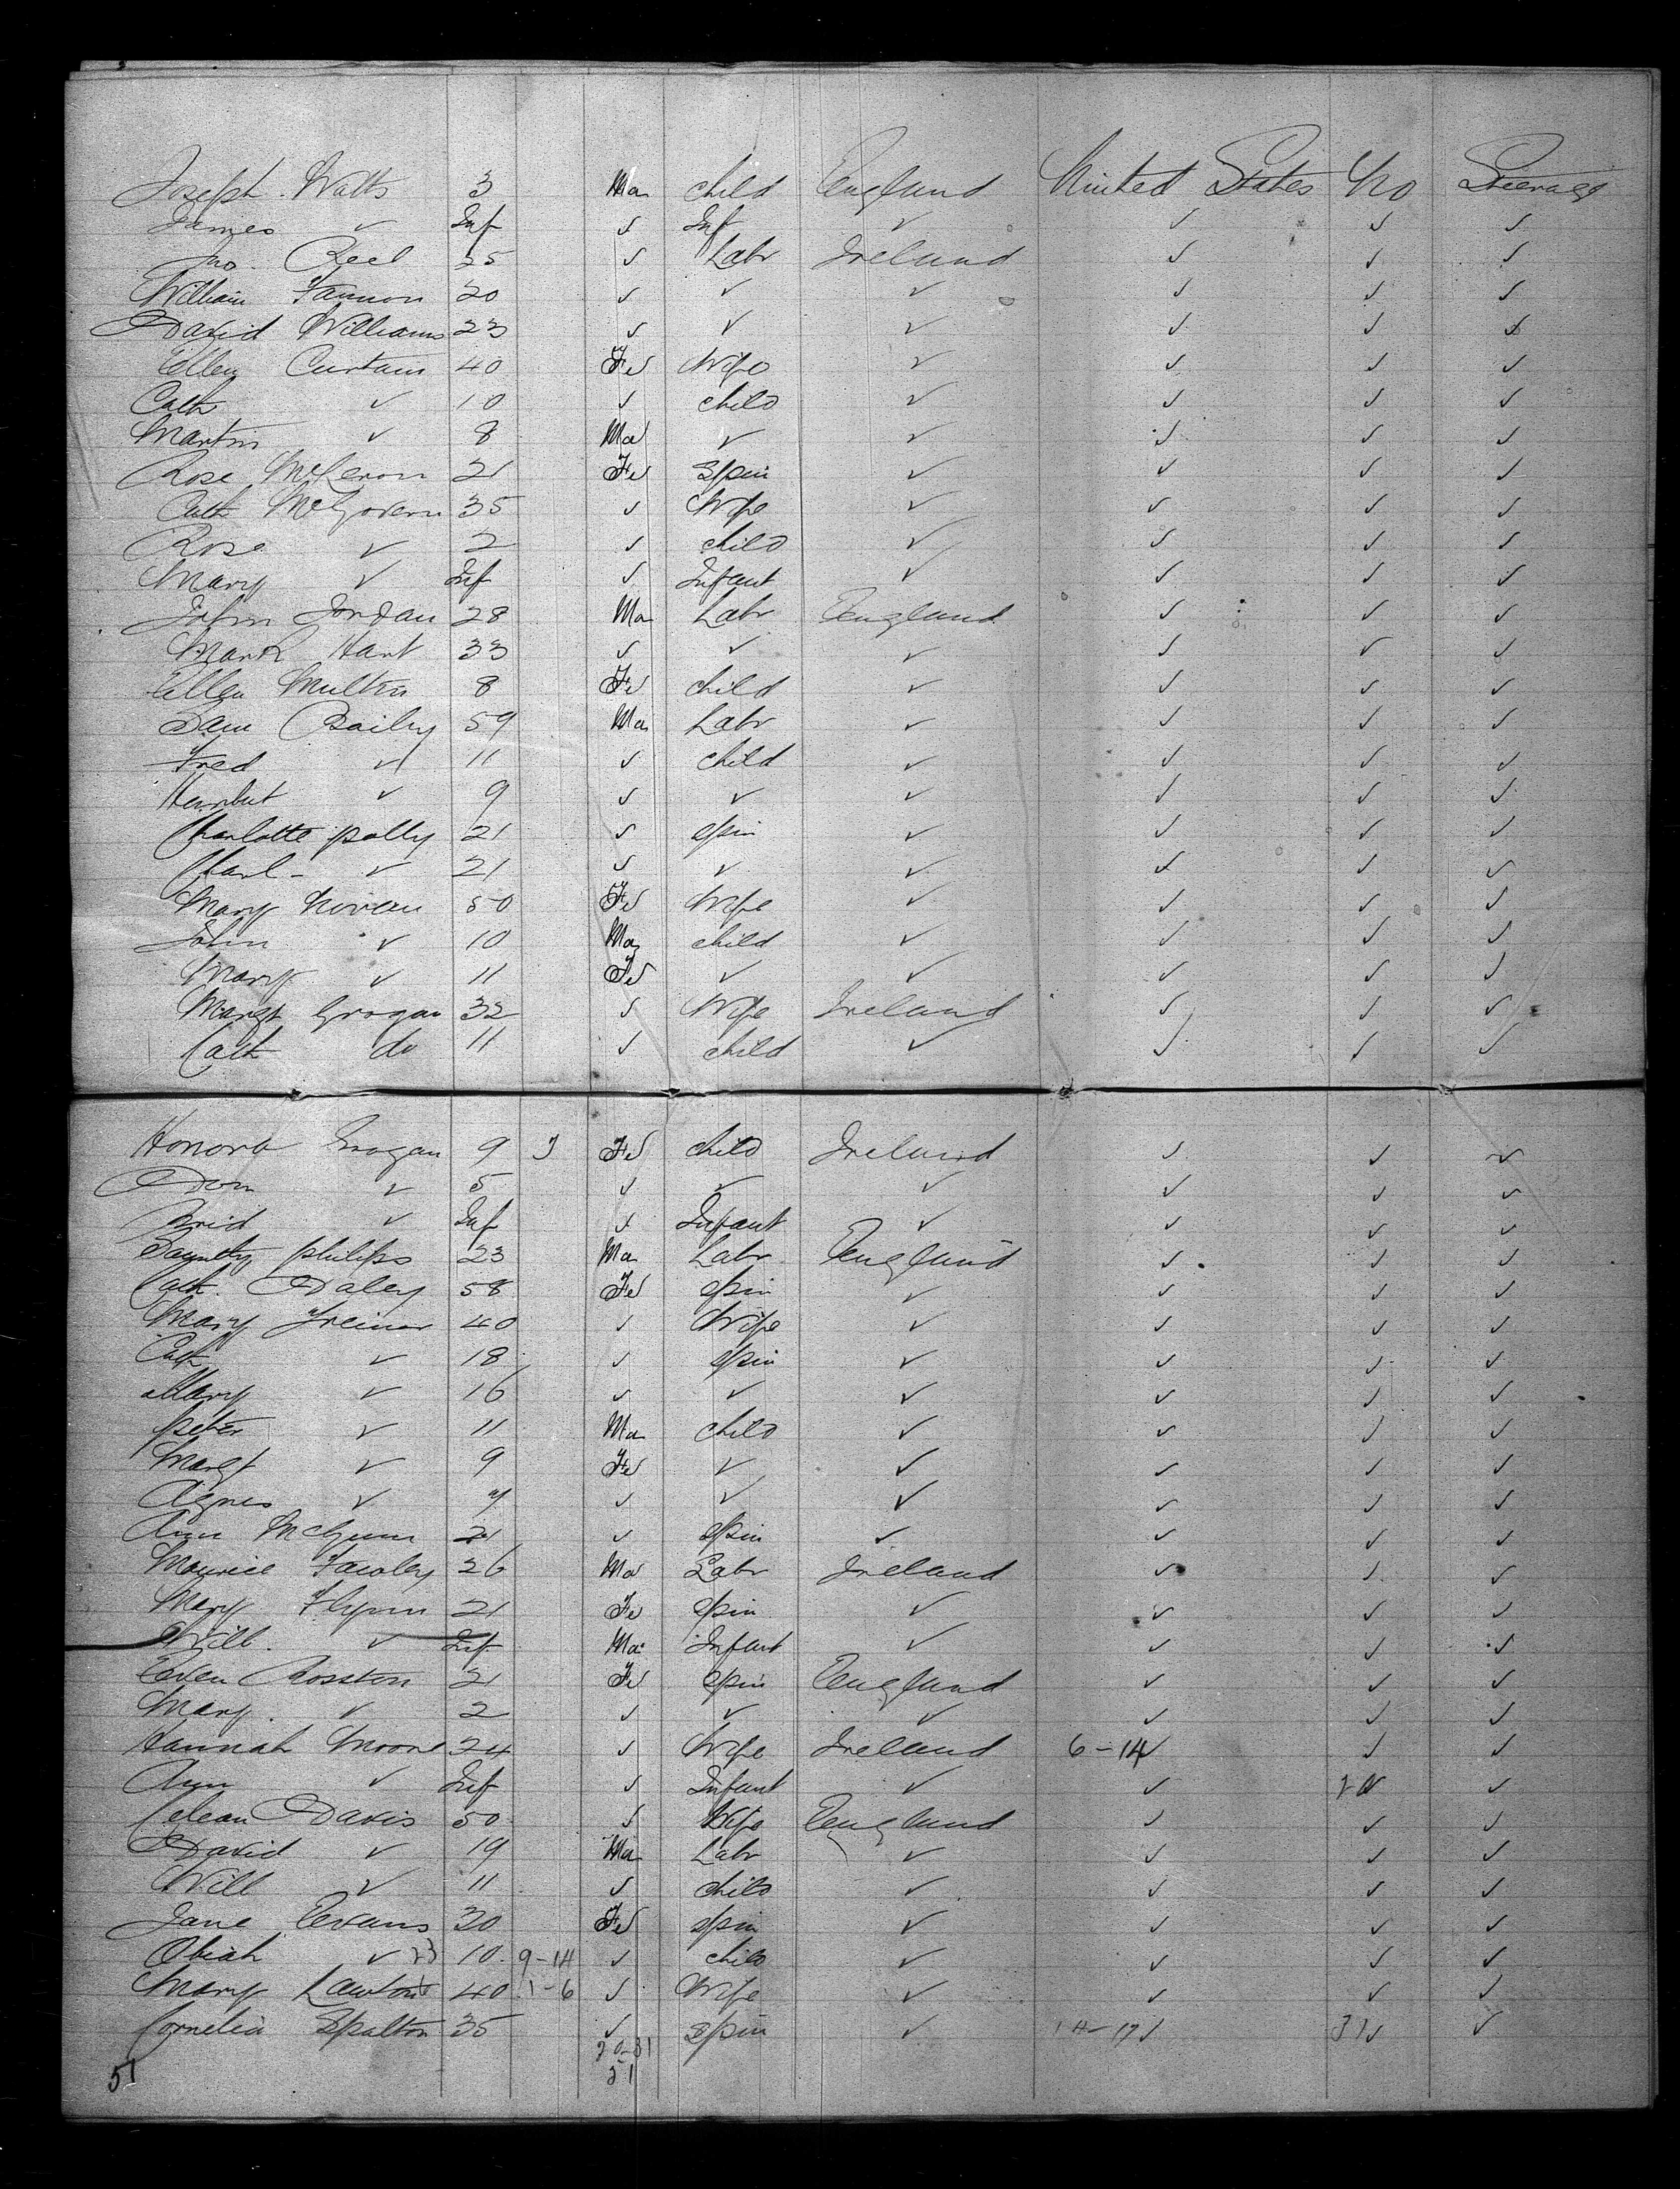 Joseph Watts 3 Ma child England United States No Steerage
James ✓ Inf ✓ Inf ✓ ✓ ✓ ✓
Jno. Reel 25 ✓ Labr Ireland ✓ ✓ ✓
William Fannon 20 ✓ ✓ ✓ ✓ ✓ ✓
David Williams 23 ✓ ✓ ✓ ✓ ✓ ✓
Ellen Curtain 40 Fe Wife ✓ ✓ ✓ ✓
Cath ✓ 10 ✓ child ✓ ✓ ✓ ✓
Martin ✓ 8 Ma ✓ ✓ ✓ ✓ ✓
Rose 21 Fe Spin ✓ ✓ ✓ ✓
Cath McGovern 35 ✓ Wife ✓ ✓ ✓ ✓
Rose ✓ 2 ✓ child ✓ ✓ ✓ ✓
Mary ✓ Inf ✓ Infant ✓ ✓ ✓ ✓
John Jordan 28 Ma Labr England ✓ ✓ ✓
Mark Hart 33 ✓ ✓ ✓ ✓ ✓ ✓
Ellen Multin 8 Fe child ✓ ✓ ✓ ✓
Sam Baily 59 Ma Labr ✓ ✓ ✓ ✓
Fred ✓ 11 ✓ child ✓ ✓ ✓ ✓
Herbut ✓ 9 ✓ ✓ ✓ ✓ ✓ ✓
Charlotte polly 21 ✓ spin ✓ ✓ ✓ ✓
Charl- ✓ 21 ✓ ✓ ✓ ✓ ✓ ✓
Mary Nivan 50 Fe Wife ✓ ✓ ✓ ✓
John ✓ 10 Ma child ✓ ✓ ✓ ✓
Mary ✓ 11 Fe ✓ ✓ ✓ ✓ ✓
Margt Grogan 32 ✓ Wife Ireland ✓ ✓ ✓
Cath do 11 ✓ child ✓ ✓ ✓ ✓
Honora Grogan 9 Fe child Ireland ✓ ✓ ✓
Dom ✓ 5 ✓ ✓ ✓ ✓ ✓ ✓
Brid ✓ Inf ✓ Infant ✓ ✓ ✓ ✓
philips 23 Ma Labr England ✓ ✓ ✓
Cath. Daley 58 Fe spin ✓ ✓ ✓ ✓
Mary Freiner 40 ✓ Wife ✓ ✓ ✓ ✓
Cath ✓ 18 ✓ spin ✓ ✓ ✓ ✓
Mary ✓ 16 ✓ ✓ ✓ ✓ ✓ ✓
peter ✓ 11 Ma child ✓ ✓ ✓ ✓
Margt ✓ 9 Fe ✓ ✓ ✓ ✓ ✓
Agnes ✓ 7 ✓ ✓ ✓ ✓ ✓ ✓
Ann McGunn 21 ✓ spin ✓ ✓ ✓ ✓
Maurice Fawley 26 Ma Labr Ireland ✓ ✓ ✓
Mary Flynn 21 Fe spin ✓ ✓ ✓ ✓
Will. ✓ Inf Ma Infant ✓ ✓ ✓ ✓
Ellen Rosston 21 Fe spin England ✓ ✓ ✓
Mary ✓ 2 ✓ ✓ ✓ ✓ ✓ ✓
Hannah Moore 24 ✓ Wife Ireland 6-14 ✓ ✓ ✓
Ann ✓ Inf ✓ Infant ✓ ✓ ✓ ✓
Davis 50 ✓ Wife England ✓ ✓ ✓
David ✓ 19 Ma Labr ✓ ✓ ✓ ✓
Will ✓ 11 ✓ child ✓ ✓ ✓ ✓
Jane Evans 30 Fe spin ✓ ✓ ✓ ✓
Obiah ✓ 23 10 9-14 ✓ child ✓ ✓ ✓ ✓
Mary Lawton 40 1-6 ✓ Wife ✓ ✓ ✓ ✓
Cornelia Spalton 35 ✓ spin ✓ 14-17 ✓ 31 ✓ ✓
20-31
51 51